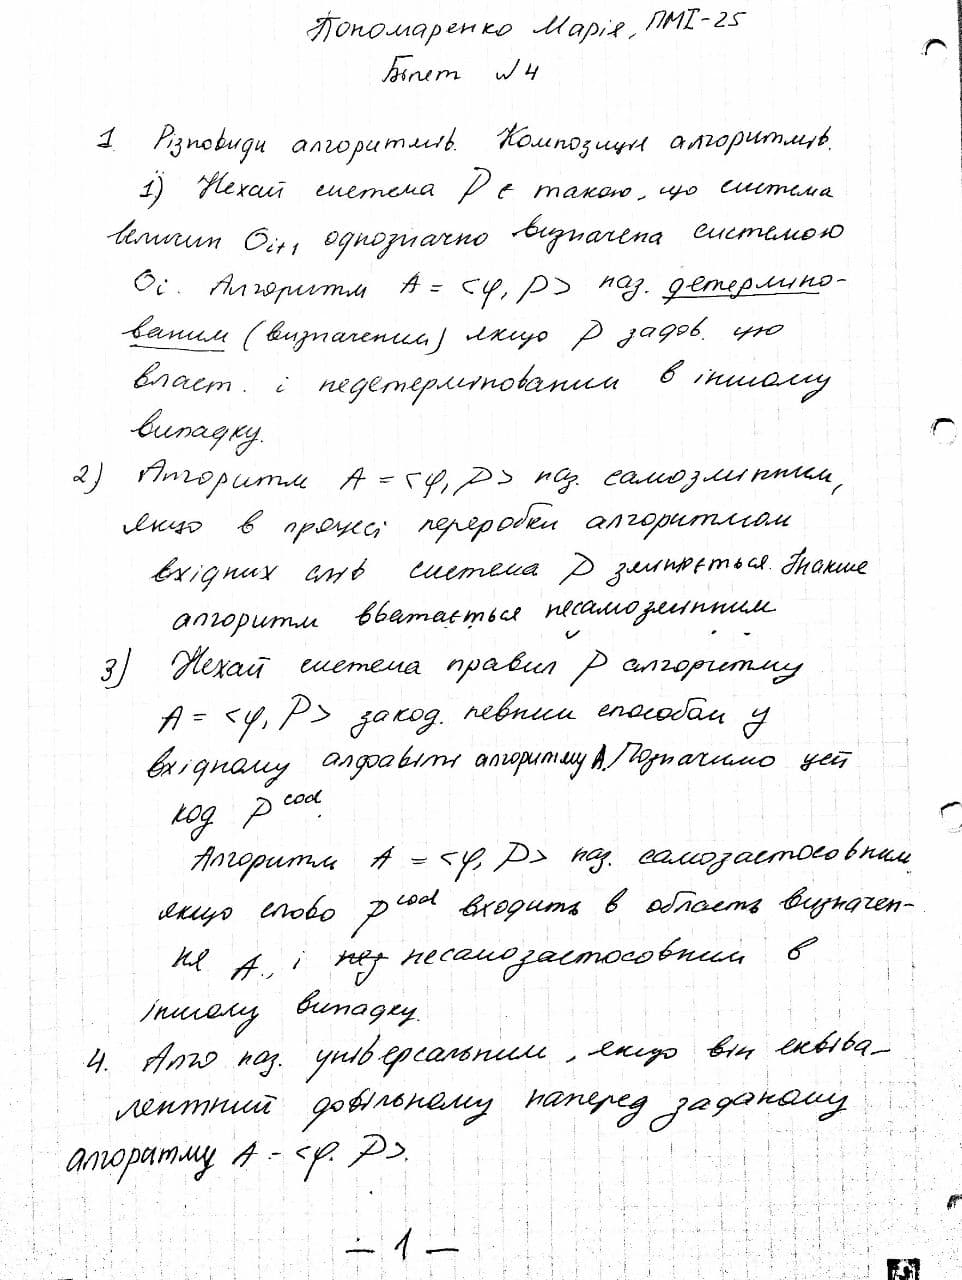 Пономаренко Марія, ПМІ-25
Білет №4
1. Різновиди алгоритмів. Композиція алгоритмів.
1) Нехай система P є такою, що система
величин Oi+1 однозначно визначена системою
Oi. Алгоритм A = <φ, P> наз. детерміно-
ваним (визначеним) якщо P задов. цю
власт. і недетермінованим в іншому
випадку.
2) Алгоритм A = <φ, P> наз. самозмінним,
якщо в процесі переробки алгоритмом
вхідних слів система P змінюється. Інакше
алгоритм вважається несамозмінним
3) Нехай система правил P алгоритму
A = <φ, P> закод. певним способом у
вхідному алфавіті алгоритму A. Позначимо цей
код P^cod.
Алгоритм A = <φ, P> наз. самозастосовним
якщо слово P^cod входить в область визначен-
ня A., і нез несамозастосовним в
іншому випадку.
4. Алго наз. універсальним, якщо він еквіва-
лентний довільному наперед заданому
алгоритму A - <φ. P>.
- 1 -